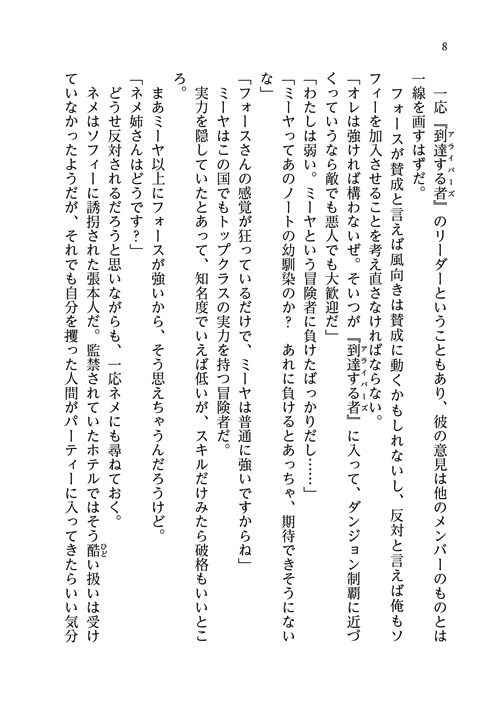 8
一応『到達する者』のリーダーということもあり、彼の意見は他のメンバーのものとは
アライバーズ
一線を画すはずだ。
フォースが賛成と言えば風向きは賛成に動くかもしれないし、反対と言えば俺もソ
フィーを加入させることを考え直さなければならない。
「オレは強ければ構わないぜ。そいつが『到達する者』に入って、ダンジョン制覇に近づ
アライバーズ
くっていうなら敵でも悪人でも大歓迎だ」
「わたしは弱い。ミーヤという冒険者に負けたばっかりだし……」
「ミーヤってあのノートの幼馴染のか？　あれに負けるとあっちゃ、期待できそうにない
な」
「フォースさんの感覚が狂っているだけで、ミーヤは普通に強いですからね」
ミーヤはこの国でもトップクラスの実力を持つ冒険者だ。
実力を隠していたとあって、知名度でいえば低いが、スキルだけみたら破格もいいとこ
ろ。
まあミーヤ以上にフォースが強いから、そう思えちゃうんだろうけど。
「ネメ姉さんはどうです？」
どうせ反対されるだろうと思いながらも、一応ネメにも尋ねておく。
ネメはソフィーに誘拐された張本人だ。監禁されていたホテルではそう酷い扱いは受け
ひど
ていなかったようだが、それでも自分を攫った人間がパーティーに入ってきたらいい気分